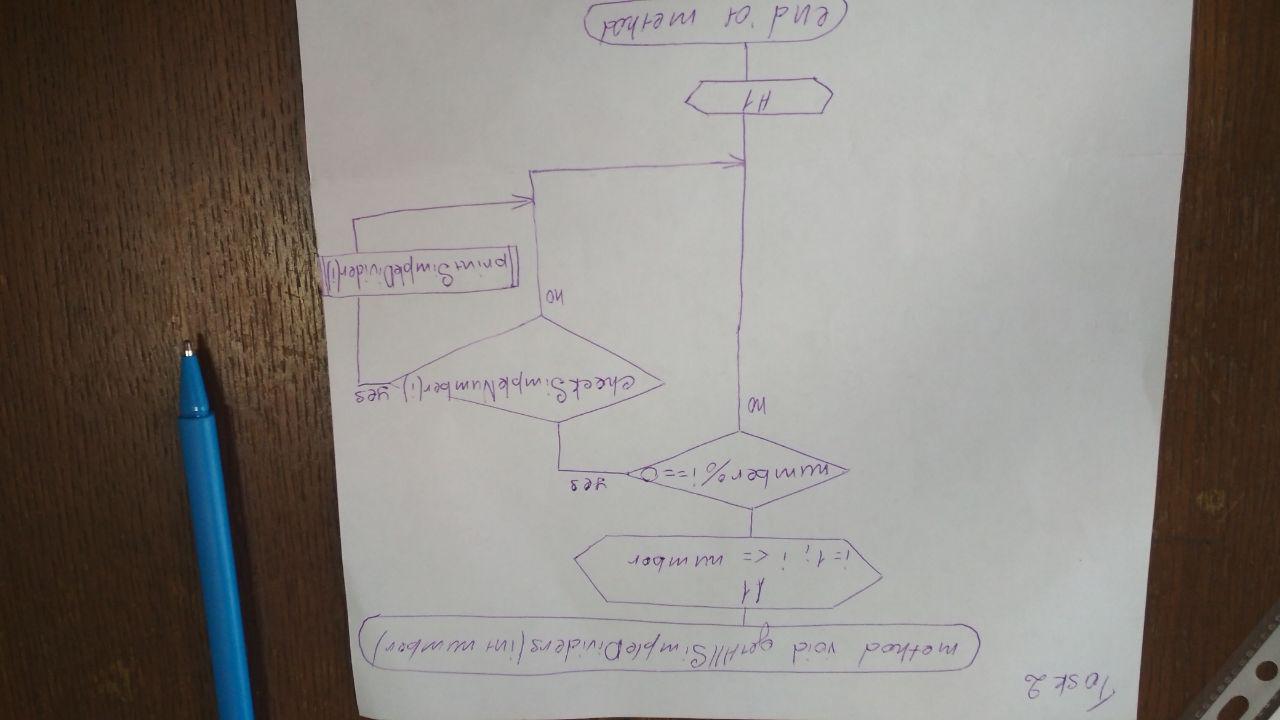 Task 2
method void getAllSimpleDividers(int number)
A1
i=1; i <= number
number%i==0
yes
no
checkSimpleNumber(i)
yes
no
printSimpleDivider(i)
A1
end of method